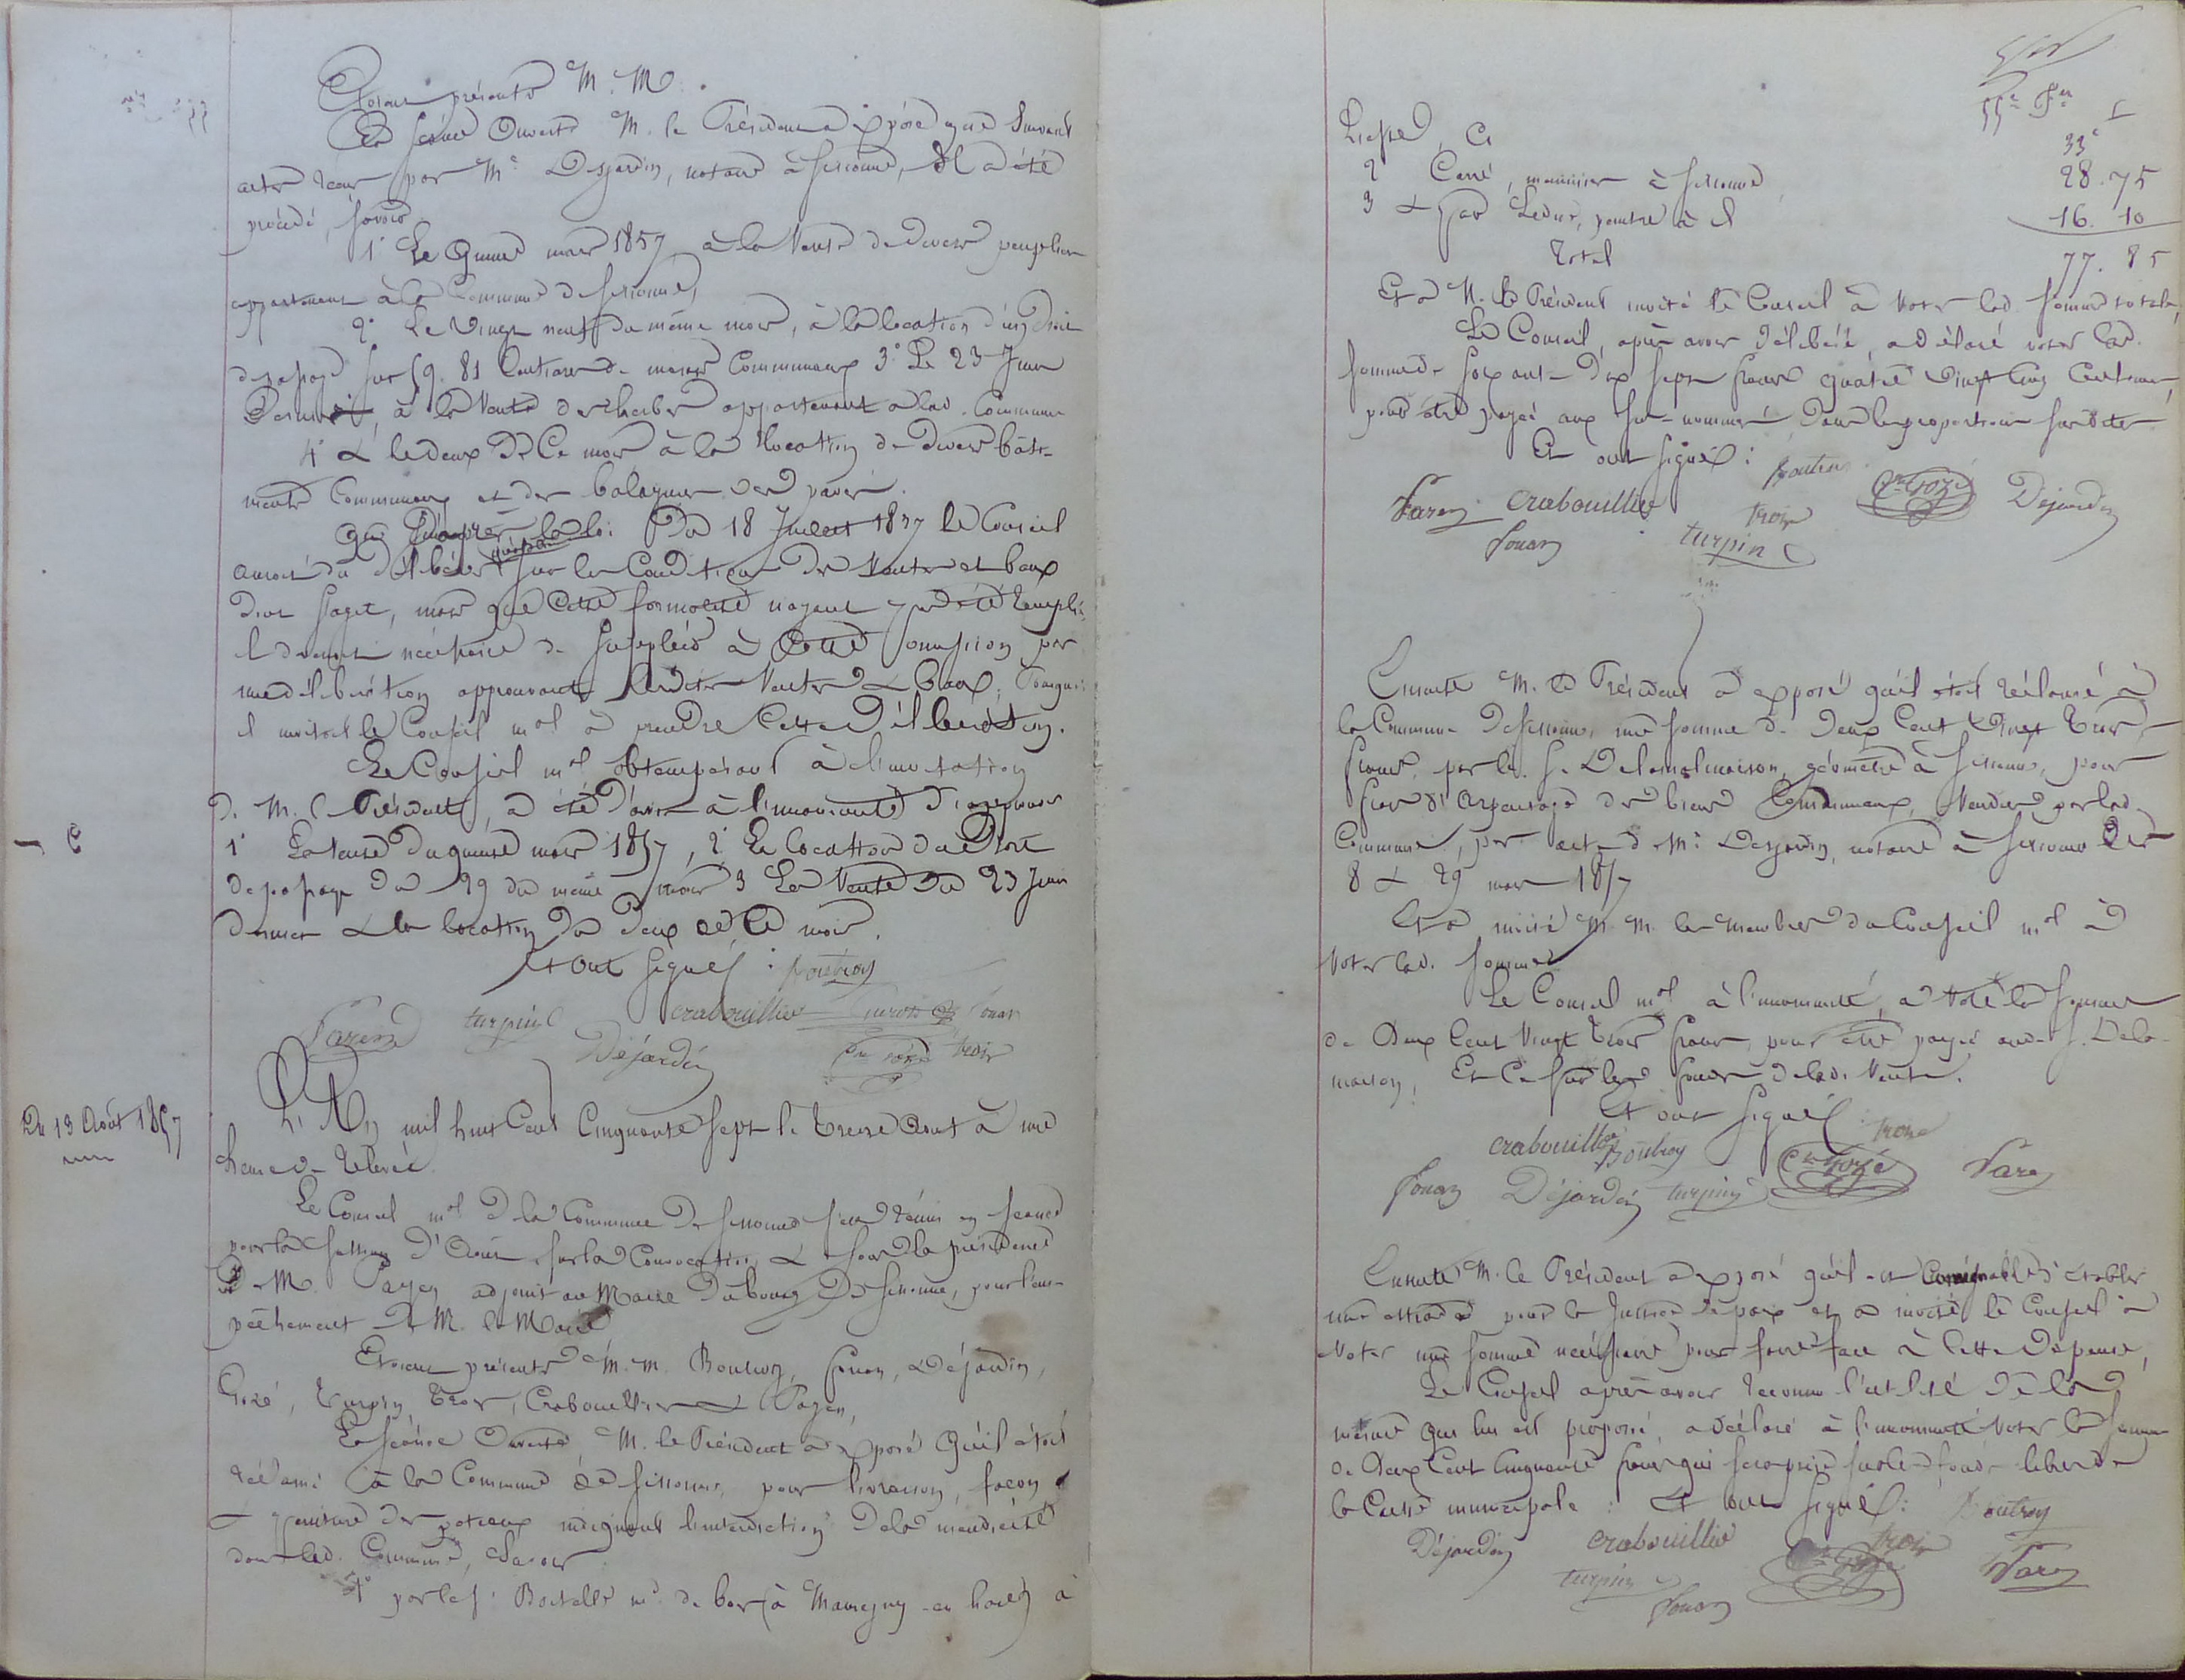 Etaient présents M. M.
La séance ouverte M. le Président a exposé que suivant
actes reçus par Me Desjardin, notaire à Sissonne, il a été
procédé, savoir
1° Le quinze mars 1857 à la vente de divers peupliers
appartenant à la Commune de Sissonne,
2° Le vingt neuf du même mois, à la location d'un droit
de passage sur 59. 81 Centiares de marais Communaux 3° Le 23 Juin
dernier, à la vente des herbes appartenant à lad. Commune
4° & le deux de ce mois à la location de divers bâti-
ments Communaux et des balayures des pavés.
Que d'après la loi du 18 Juillet 1837 le Conseil
aurait dû délibérer sur les Conditions des ventes et baux
dont s'agit, mais que cette formalité n'ayant pas été remplie,
il devenait nécessaire de suppléer à cette omission par
une délibération approuvant lesdites ventes & baux; Pourquoi
il invitait le Conseil mal à prendre cette délibération.
Le Conseil mal obtempérant à l'invitation
de M. le Président, a été d'avis à l'unanimité d'approuver
1° La vente du quinze mars 1857, 2° La location du droit
de passage du 29 du même mois 3° La vente du 23 Juin
dernier & la location du deux de ce mois.
Et ont signé: Boutroy
Payen turpin crabouillier Fouan
Déjardin Gozé trois
Du 13 Août 1857
L'An mil huit Cent Cinquante sept le treize Août à une
heure de relevée.
Le Conseil mal de la Commune de Sissonne s'est réuni en séance
pour la session d'Août, sur la Convocation & sous la présidence
de M. Payen adjoint au Maire du bourg de Sissonne, pour l'em-
pêchement de M. le Maire
Etaient présents M. M. Boutroy, Fouan, Déjardin,
Gozé, Turpin, Trois, Crabouillier & Payen,
La séance ouverte, M. le Président a exposé qu'il était
réclamé à la Commune de Sissonne, pour livraison, façon
& peinture des poteaux indiquant l'interdiction de la mendicité
dans lad. Commune, Savoir
1° par le S. md. de bois à en haies à
Liesse, Ci 33
2° Carré, menuisier à Sissonne 28. 75
3° & par Leduc, peintre à id 16. 10
Total 77. 85
Et a M. le Président invité le Conseil à voter lad. somme totale,
Le Conseil, après avoir délibéré, a déclaré voter lad.
somme de soixante dix sept francs quatre vingt cinq Centimes,
pour être payée aux sus-nommés, dans les proportions susdites
Et ont signé: Boutroy
Payen crabouillier trois Gozé Déjardin
Fouan turpin
Ensuite M. le Président a exposé qu'il était réclamé à
la Commune de Sissonne, une somme de deux Cent vingt trois
francs, par le S. Delamalmaison, géomètre à Sissonne, pour
frais d'arpentage des biens Communaux, vendus par lad.
Commune, par acte de Me Desjardin, notaire à Sissonne des
8 & 29 mars 1857
Et a invité M. M. les membres du Conseil mal à
voter lad. somme
Le Conseil mal à l'unanimité, a voté la somme
de deux Cent vingt trois francs, pour être payée aud. S. Dela-
maison, Et ce sur les fonds de lad. vente.
Et ont signé: trois
crabouillier Boutroy Gozé Payen
Fouan Déjardin turpin
Ensuite M. le Président a exposé qu'il est d'établir
une estrade pour la Justice de paix et a invité le Conseil à
voter une somme nécessaire pour faire face à cette dépense,
Le Conseil après avoir reconnu l'utilité de la
mesure qui lui est proposée, a déclaré à l'unanimité voter la somme
de deux Cent Cinquante francs qui sera prise sur les fonds libres de
la Caisse municipale: Et ont signé: Boutroy
Déjardin crabouillier trois
turpin Gozé Payen
Fouan